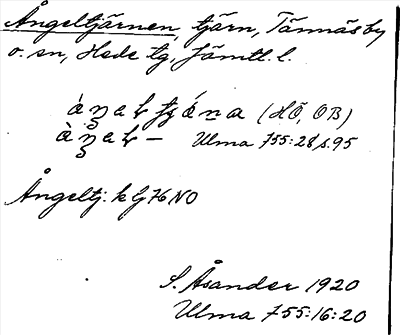 Ångeltjärnen, tjärn, Tännäs by
o. sn, Hede tg, Jämtl. l.
(HÖ, OB)
Ulma 755:28 s. 95
Ångeltj. k G76 NO
S. Åsander 1920
Ulma 755:16:20